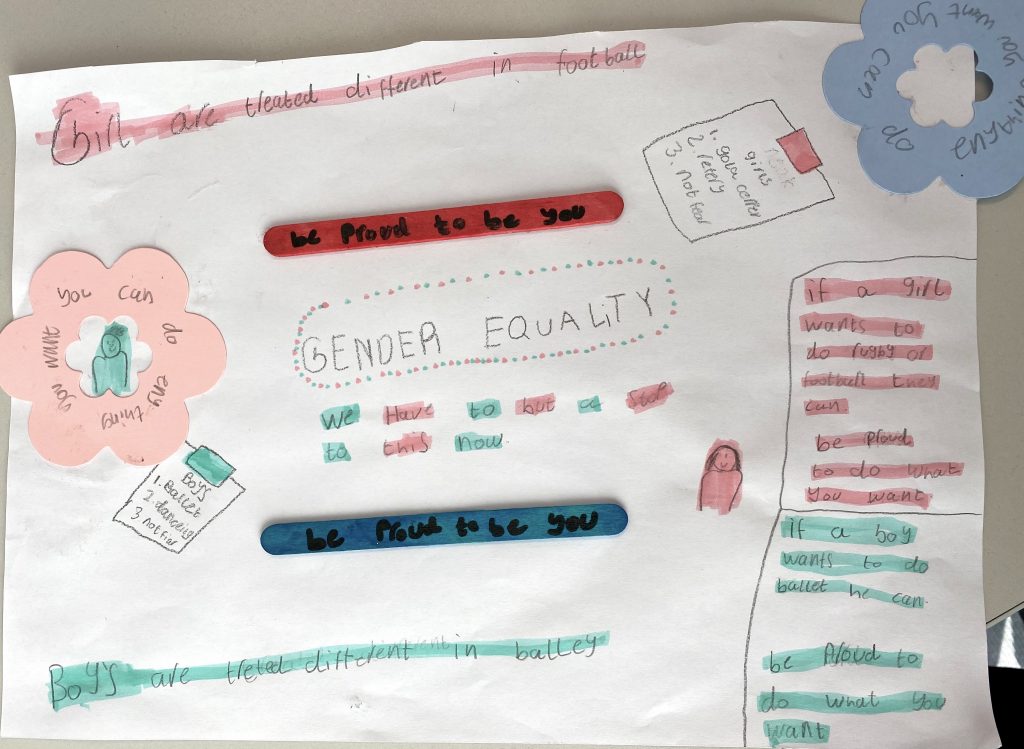 Girl are treated different in football
you can do eny thing you want
1.
2.
3. not fear
girls
be Proud to be you
GENDER EQUALITY
We Have to but a stop
to this now
you can do eny thing you want
Boys
1. Ballet
2 danceing
3 not fier
be Proud to be you
if a girl
wants to
do rugby or
football they
can
be proud
to do what
you want
if a boy
wants to do
ballet he can.
be Proud to
do what you
want
Boys are treted different in balley